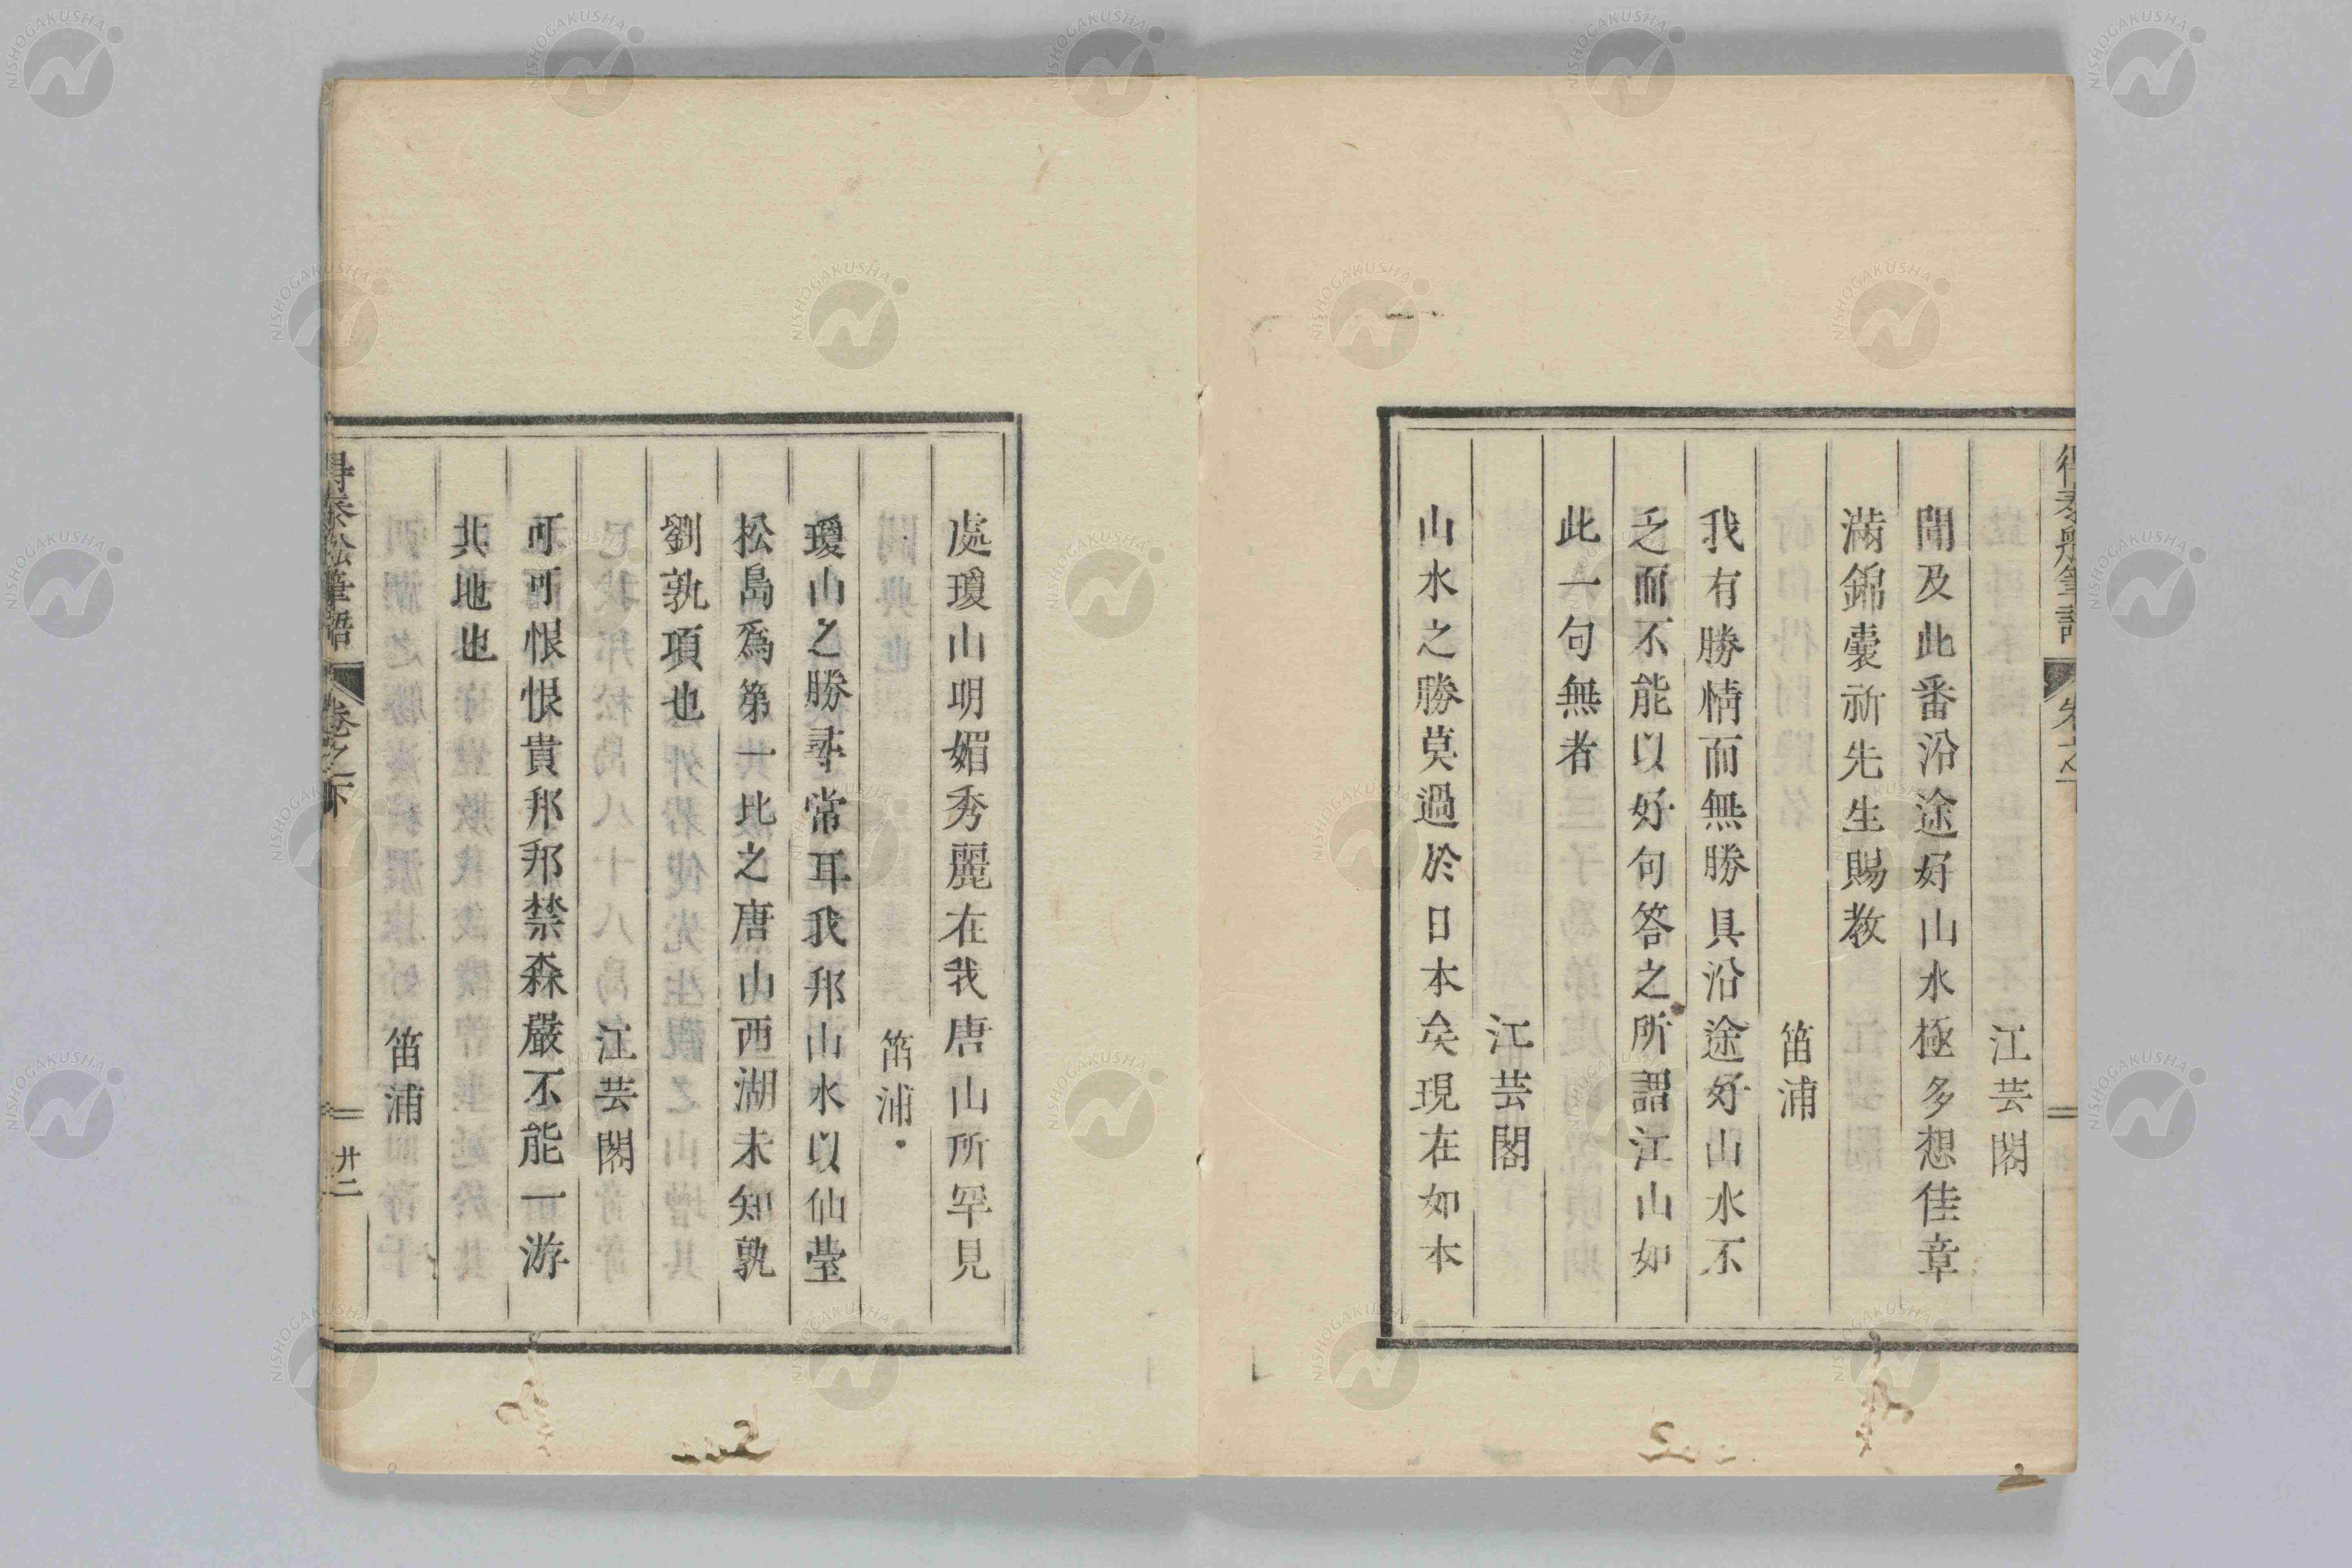 江芸閣
聞及此番沿途好山水極多想佳章
滿錦囊祈先生賜教
笛浦
我有勝情而無勝具沿途好山水不
乏而不能以好句答之所謂江山如
此一句無者
江芸閣
山水之勝莫過於日本矣現在如本
處瓊山明媚秀麗在我唐山所罕見
笛浦
瓊山之勝尋常耳我邦山水以仙臺
松島爲第一比之唐山西湖未知孰
劉孰項也
江芸閣
可可恨恨貴邦邦禁森嚴不能一游
其地也
笛浦
得泰船筆語 卷之下 廿二
NISHOGAKUSHA